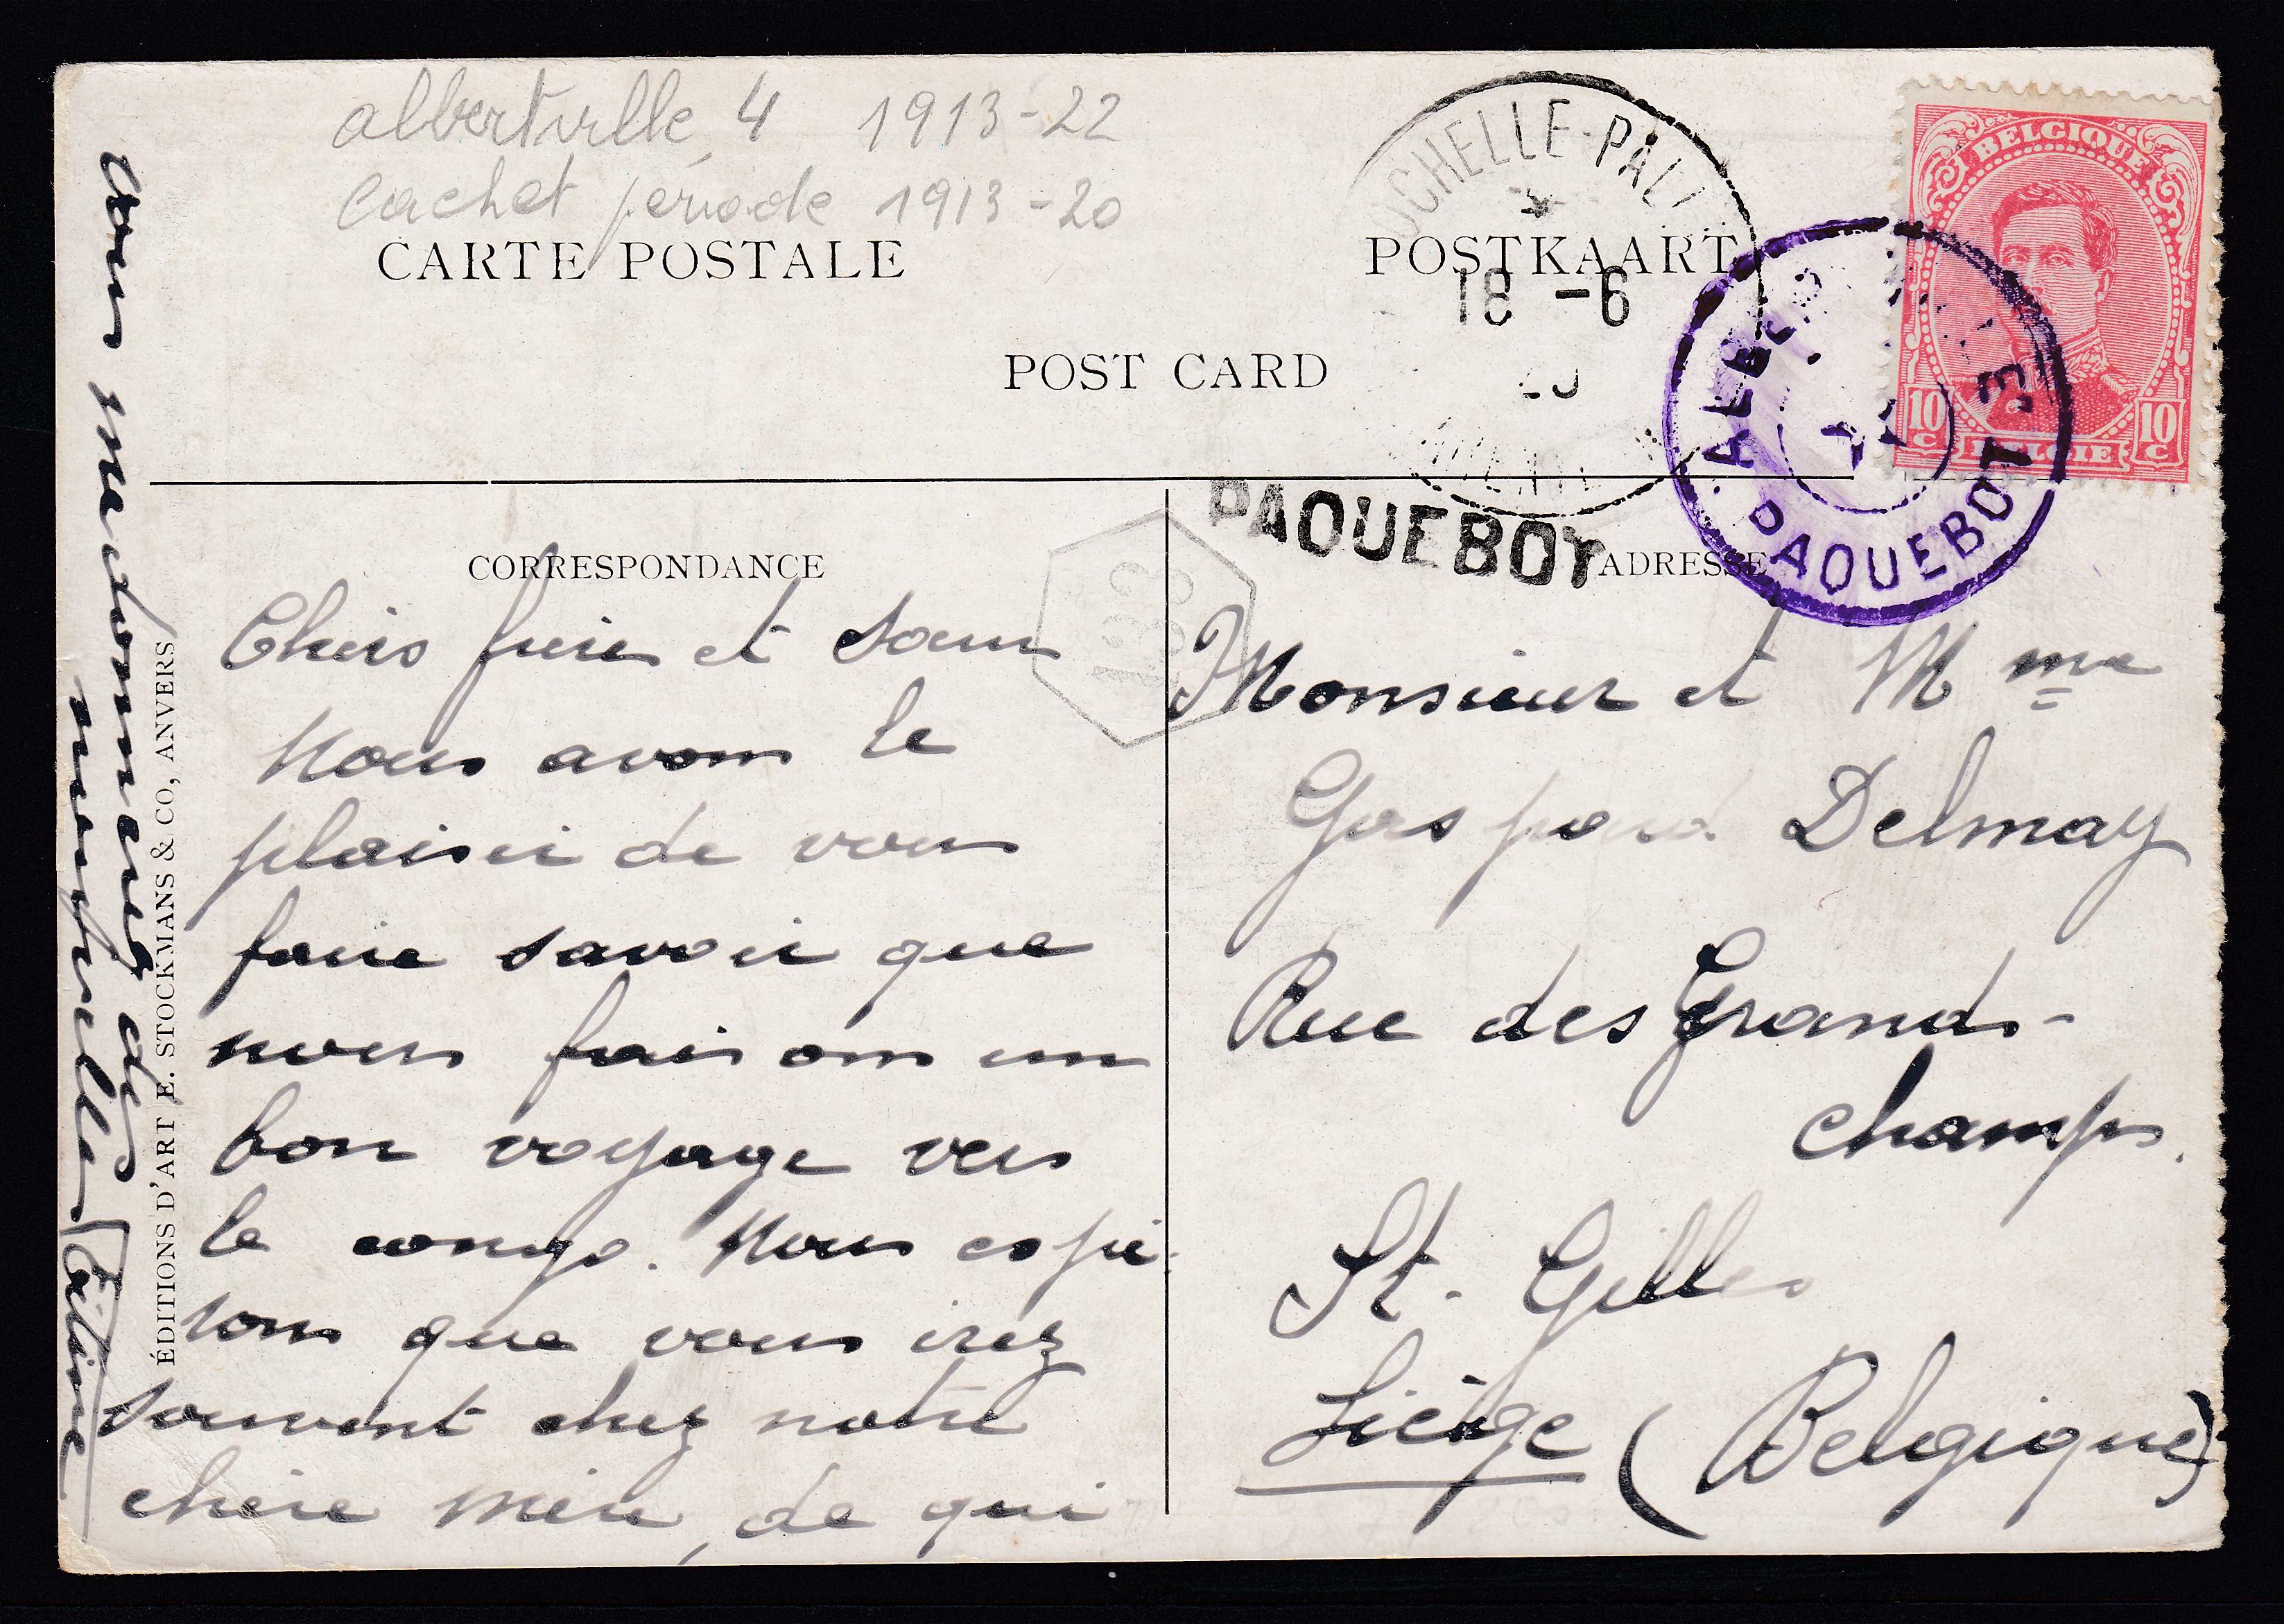 albertville 4 1913-22
cachet période 1913-20
CARTE POSTALE
POSTKAART
POST CARD
OCHELLE-PALL
18 -6
BELGIQUE
10 c
BELGIE
10 c
PAQUEBOT
PAQUEBOT
CORRESPONDANCE
ADRESSE
233
Chers frère et sœur
Nous avons le
plaisir de vous
faire savoir que
nous faisons un
bon voyage vers
le congo. Nous espé-
rons que vous irez
souvent chez notre
chère mère, de qui
vous nous donnerez des
nouvelles
ÉDITIONS D'ART E. STOCKMANS & CO, ANVERS
Monsieur et Mme
Gaspard Delmay
Rue des Grands-
champs.
St. Gilles
Liège (Belgique)